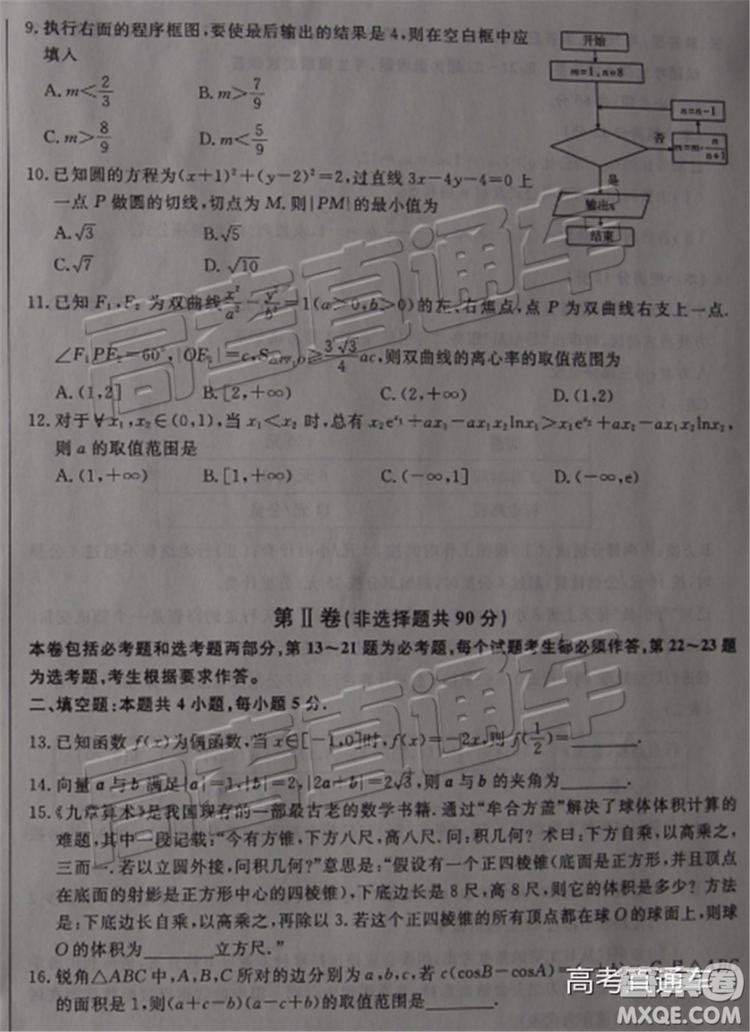 9. 执行右面的程序框图,要使最后输出的结果是4,则在空白框中应
填入
A. m<2/3 B. m>7/9
C. m>8/9 D. m<5/9
开始
m=1, n=8
n=n-1
否
m=m·n/(n+1)
是
输出n
结束
10. 已知圆的方程为(x+1)²+(y-2)²=2,过直线3x-4y-4=0上
一点P做圆的切线,切点为M.则|PM|的最小值为
A. √3 B. √5
C. √7 D. √10
11. 已知F₁,F₂为双曲线x²/a²-y²/b²=1(a>0,b>0)的左、右焦点,点P为双曲线右支上一点.
∠F₁PF₂=60°,|OF₂|=c,S△PF₁F₂≥3√3/4 ac,则双曲线的离心率的取值范围为
A. (1,2] B. [2,+∞) C. (2,+∞) D. (1,2)
12. 对于∀x₁,x₂∈(0,1),当x₁<x₂时,总有x₂e^x₁+ax₁-ax₁x₂lnx₁>x₁e^x₂+ax₂-ax₁x₂lnx₂,
则a的取值范围是
A. (1,+∞) B. [1,+∞) C. (-∞,1] D. (-∞,e)
第Ⅱ卷(非选择题共90分)
本卷包括必考题和选考题两部分,第13~21题为必考题,每个试题考生都必须作答,第22~23题
为选考题,考生根据要求作答。
二、填空题:本题共4小题,每小题5分.
13. 已知函数f(x)为偶函数,当x∈[-1,0]时,f(x)=-2x,则f(1/2)=______.
14. 向量a与b满足|a|=1,|b|=2,|2a+b|=2√3,则a与b的夹角为______.
15.《九章算术》是我国现存的一部最古老的数学书籍.通过“牟合方盖”解决了球体体积计算的
难题,其中一段记载:“今有方锥,下方八尺,高八尺.问:积几何?术曰:下方自乘,以高乘之,
三而一.若以立圆外接,问积几何?”意思是:“假设有一个正四棱锥(底面是正方形,顶点
在底面的射影是正方形中心的四棱锥),下底边长是8尺,高8尺,则它的体积是多少?方法
是:下底边长自乘,以高乘之,再除以3.若这个正四棱锥的所有顶点都在球O的球面上,则球
O的体积为______立方尺.”
16. 锐角△ABC中,A,B,C所对的边分别为a,b,c,若c(cosB-cosA)=
的面积是1,则(a+c-b)(a-c+b)的取值范围是______.
高考直通车
高考直通车
高考直通车